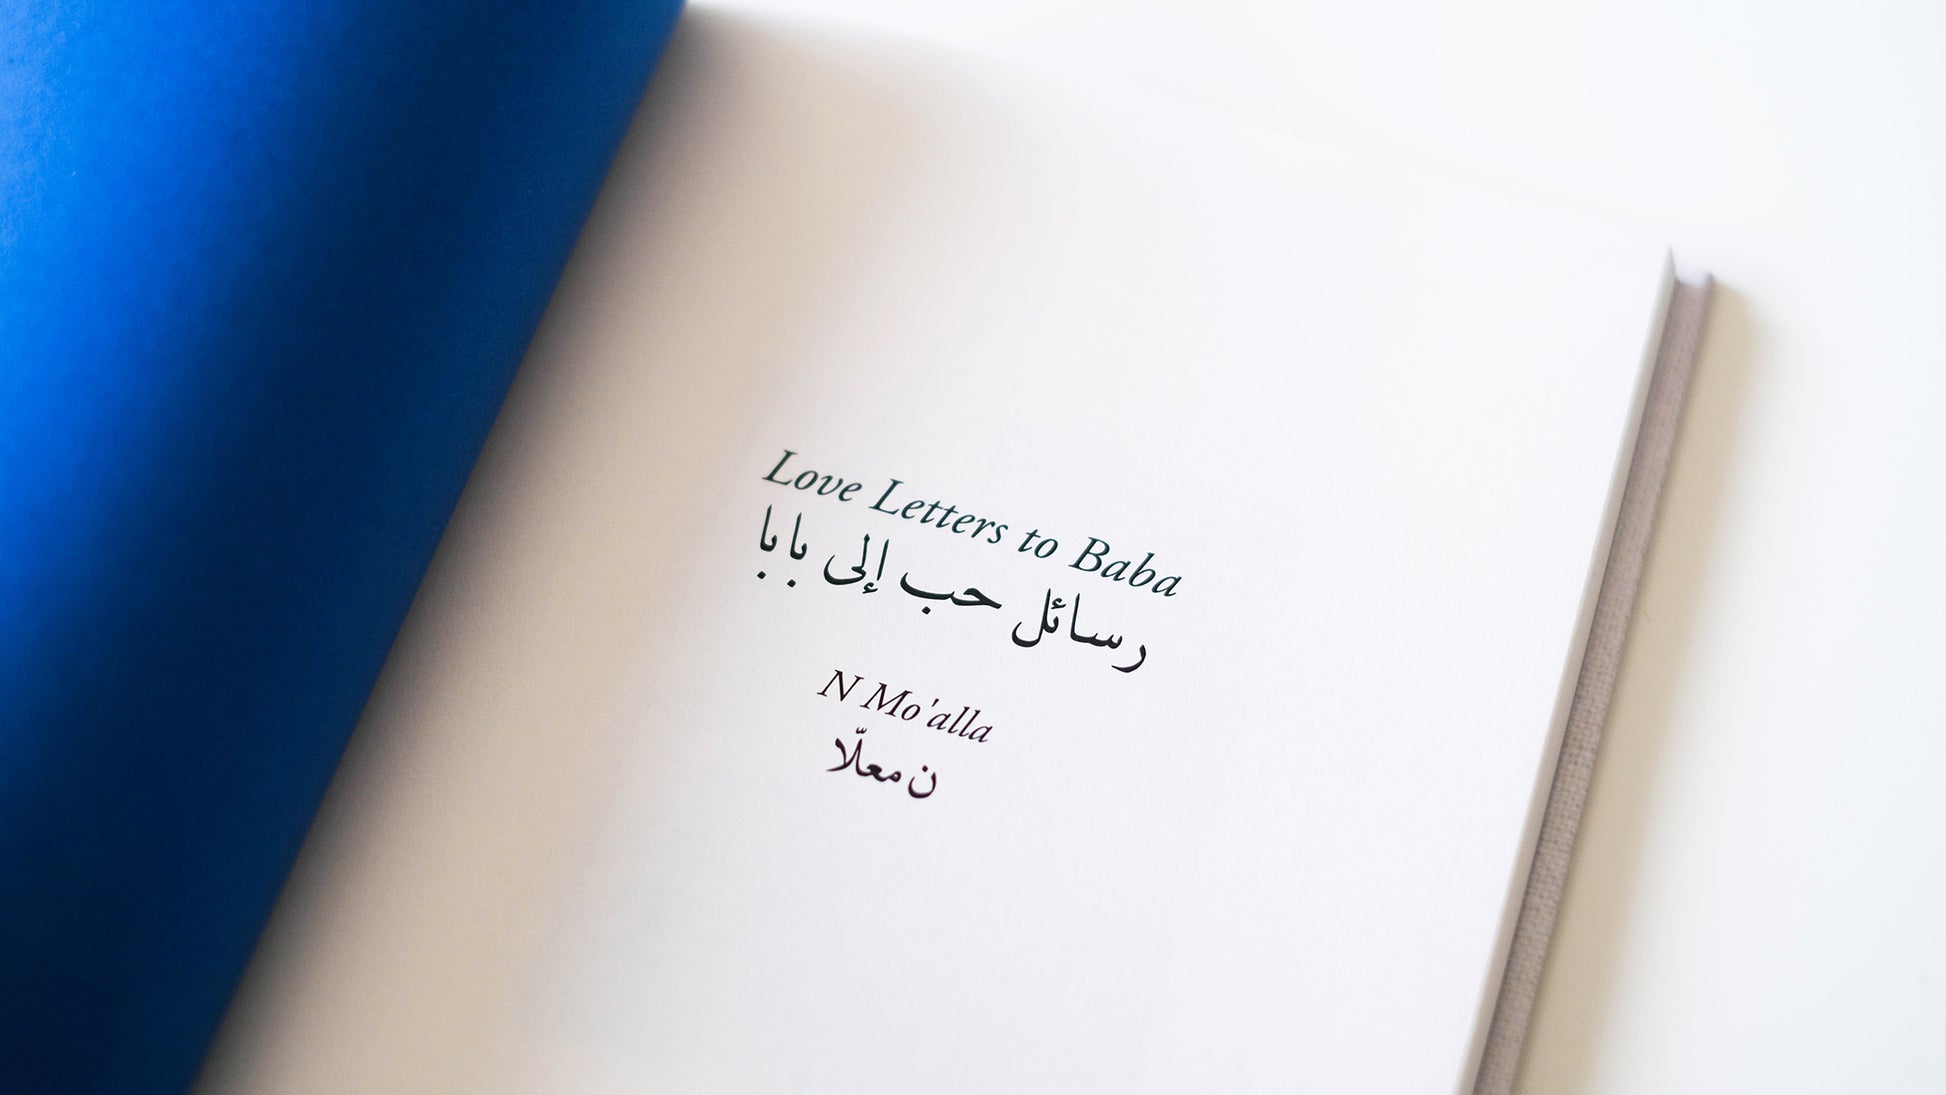 Love Letters to Baba
رسائل حب إلى بابا
N Mo'alla
ن معلّا